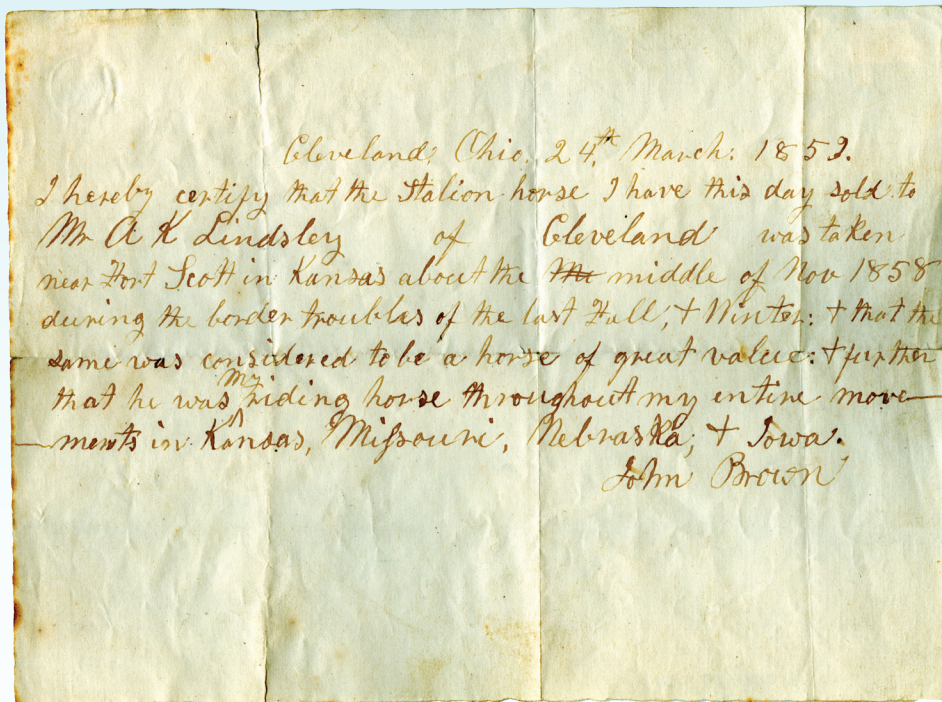 Cleveland, Ohio. 24th March. 1859.
I hereby certify that the Stalion horse I have this day sold to
Mr A K Lindsley of Cleveland was taken
near Fort Scott in Kansas about the the middle of Nov 1858
during the border troubles of the last Fall, + Winter: + that the
same was considered to be a horse of great value: + further
that he was My riding horse throughout my entire move-
-ments in Kansas, Missouri, Nebraska, + Iowa.
John Brown